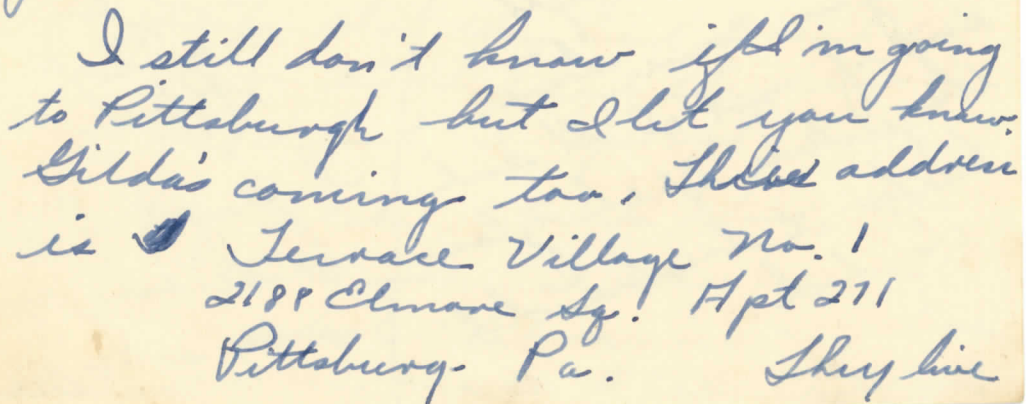 I still don't know if I'm going
to Pittsburgh but I let you know.
Gilda's coming too. Their address
is Terrace Village No. 1
Elmore Sq. Apt 271
Pittsburg Pa. They live